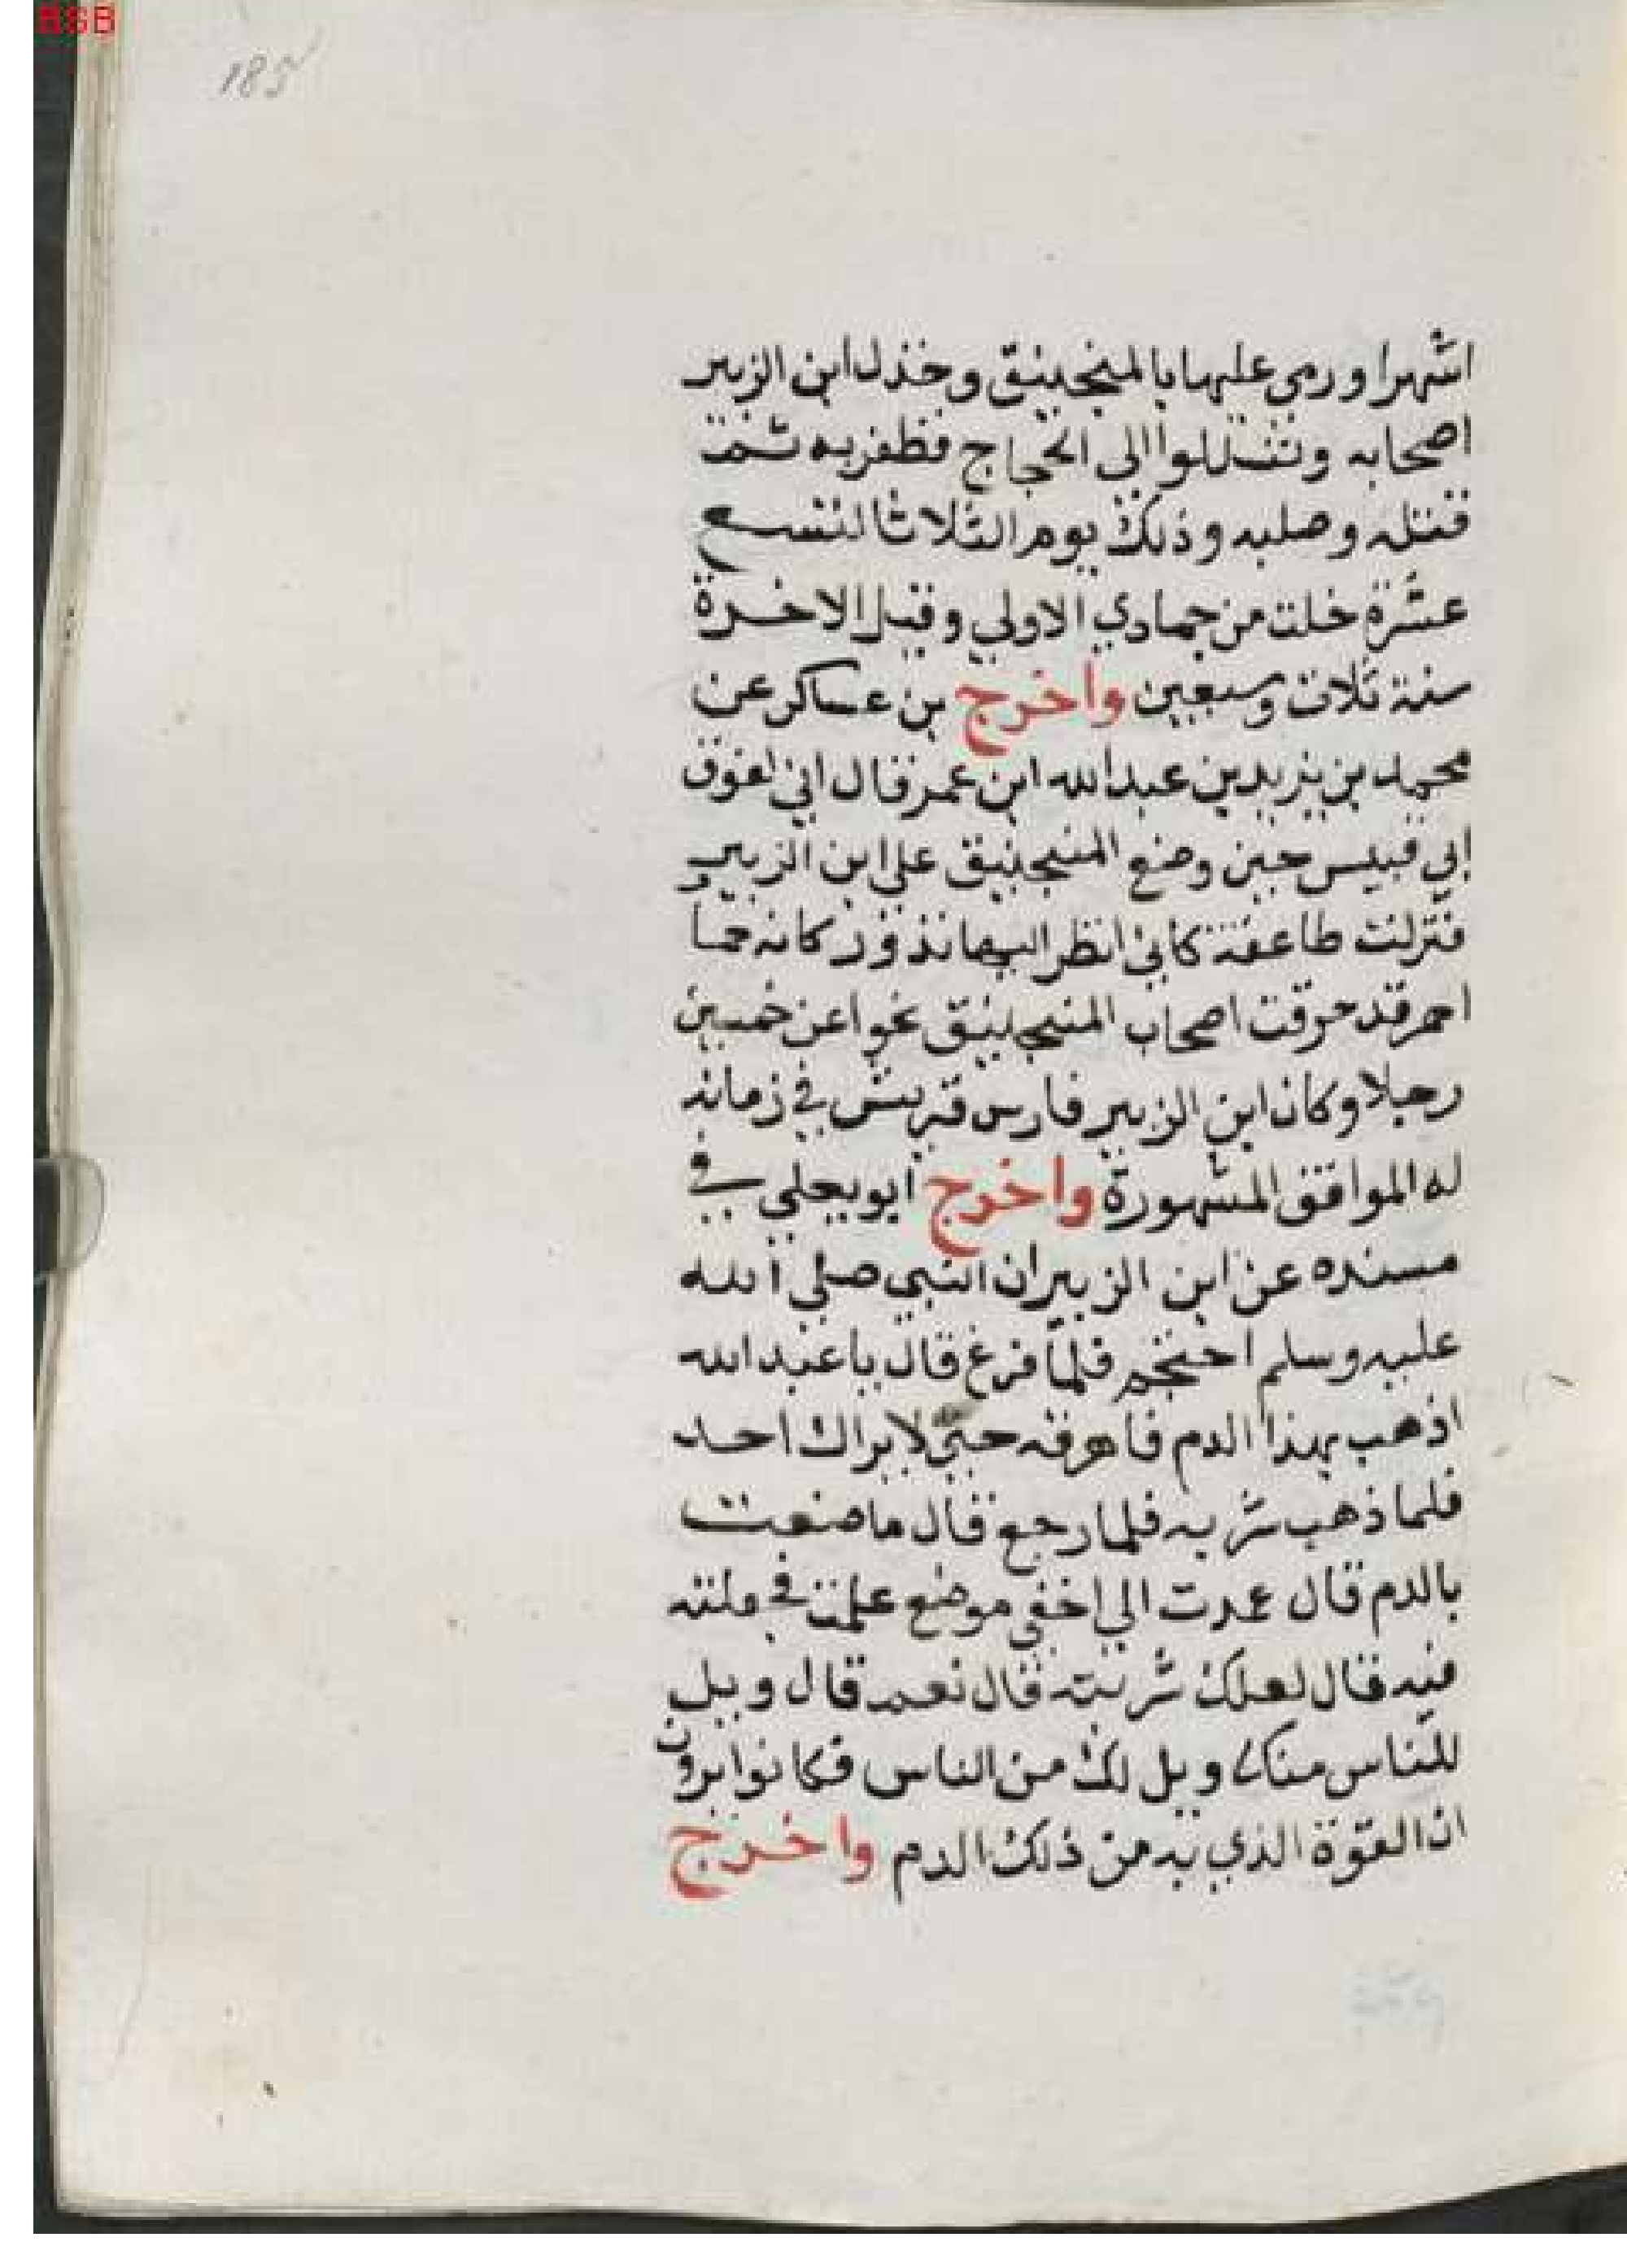 BSB
185
اشهرا ورمى عليها بالمنجنيق وخذل ابن الزبير
اصحابه وتسللوا الى الحجاج فظفر به ثمت
فقتله وصلبه وذلك يوم الثلاثا لتسع
عشرة خلت من جمادي الاولي وقيل الاخرة
سنة ثلاث وسبعين واخرج بن عساكر عن
محمد بن يزيد بن عبد الله ابن عمر قال اني لفوق
ابي قبيس حين وضع المنجنيق علي ابن الزبير
فنزلت طاعقة كاني انظر اليها تدور كانه
احمر قد حرقت اصحاب المنيجنيق نحوا عن خمسين
رجلا وكان ابن الزبير فارس قريش في زمانه
له المواقف المشهورة واخرج ابو يعلي في
مسنده عن ابن الزبير ان النبي صلي الله
عليه وسلم احتجم فلما فرغ قال يا عبد الله
اذهب بهذا الدم فاهرقه حتي لا يراك احد
فلما ذهب شربه فلما رجع قال ما صنعت
بالدم قال عمدت الي اخفي موضع علمت فجعلته
فيه قال لعلك شربته قال نعم قال ويل
للناس منك وويل لك من الناس فكانوا يرون
ان القوة الذي به من ذلك الدم واخرج